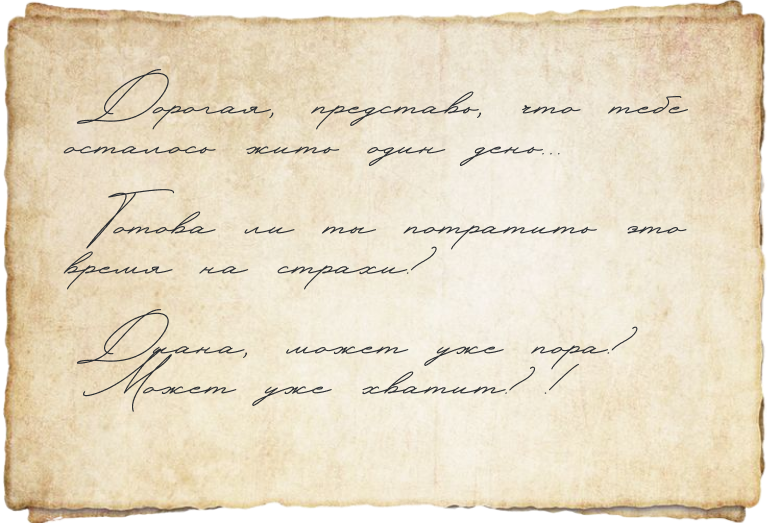 Дорогая, представь, что тебе
осталось жить один день...
Готова ли ты потратить это
время на страхи?
Диана, может уже пора?
Может уже хватит?!